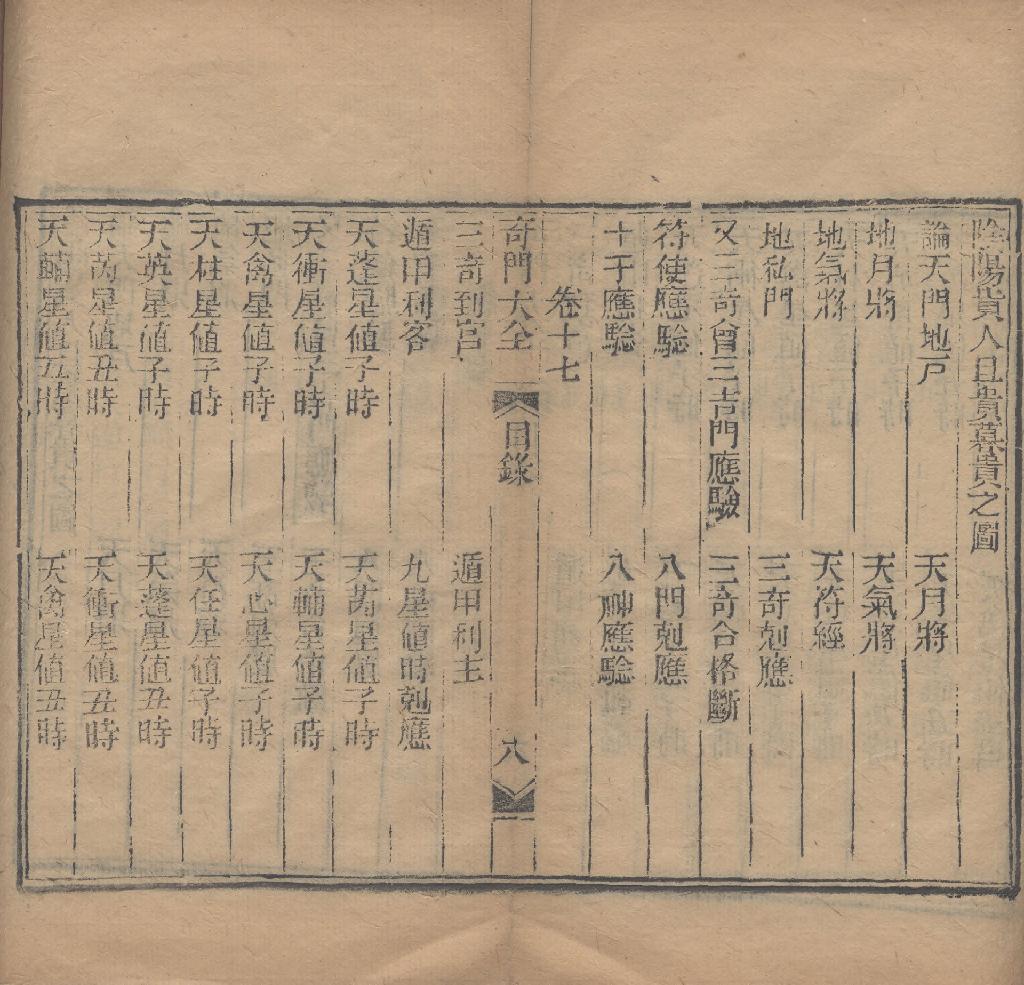 陰陽貴人旦貴暮貴之圖
論天門地戸　天月將
地月將　天氣將
地氣將　天符經
地私門　三奇剋應
又三奇會三吉門應驗　三奇合格斷
符使應驗　八門剋應
十干應驗　八神應驗
卷十七
奇門大全　目錄　八
三奇到宮　遁甲利主
遁甲利客　九星値時剋應
天蓬星値子時　天芮星値子時
天衝星値子時　天輔星値子時
天禽星値子時　天心星値子時
天柱星値子時　天任星値子時
天英星値子時　天蓬星値丑時
天芮星値丑時　天衝星値丑時
天輔星値丑時　天禽星値丑時